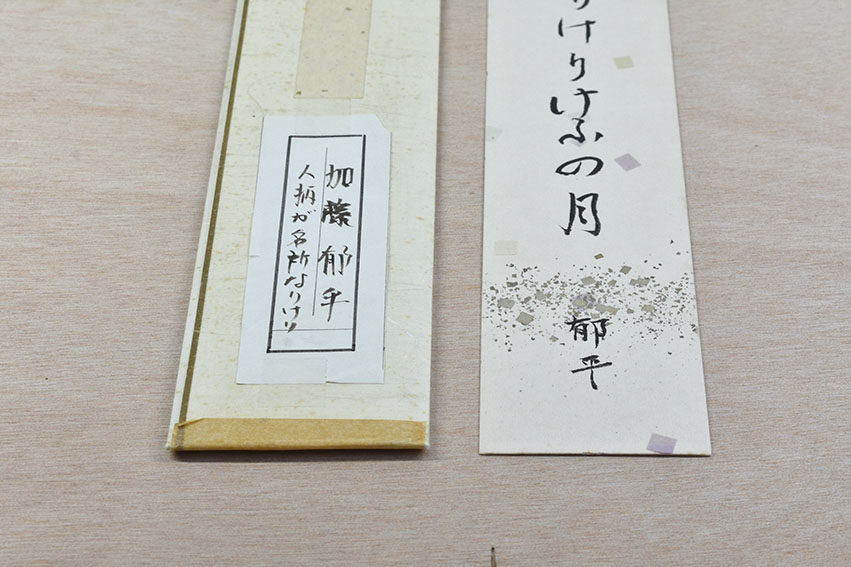 加藤郁平
人柄が名所なりけり
りけりけふの月
郁平